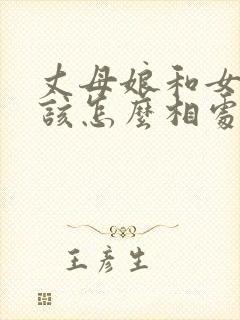 丈母娘和女
該怎麼相處
王彥生